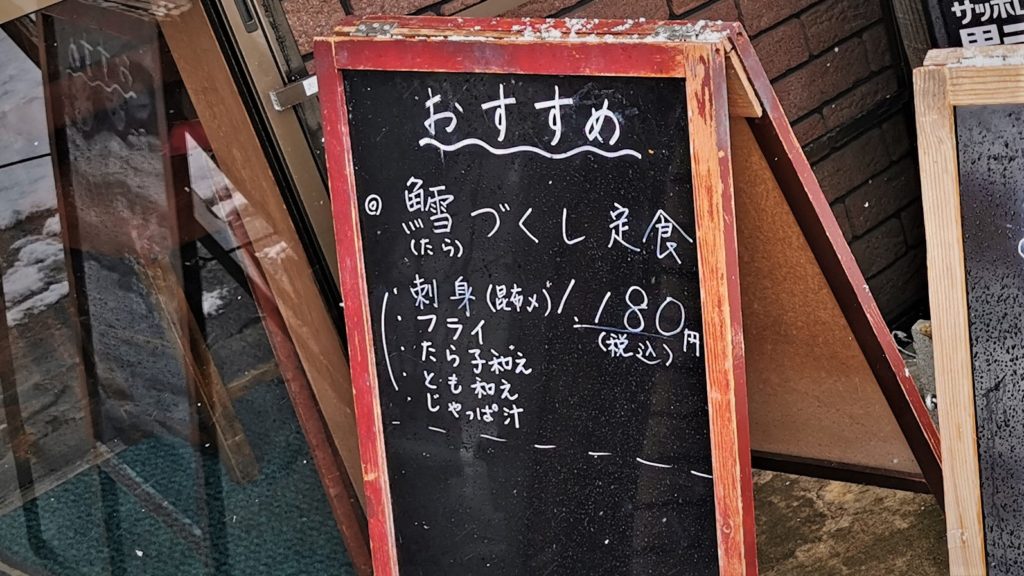 おすすめ
◎ 鱈づくし 定食
(たら)
・刺身(昆布〆)
・フライ
・たら子和え
・とも和え
・じゃっぱ汁
1,180円
(税込)
サッポロ